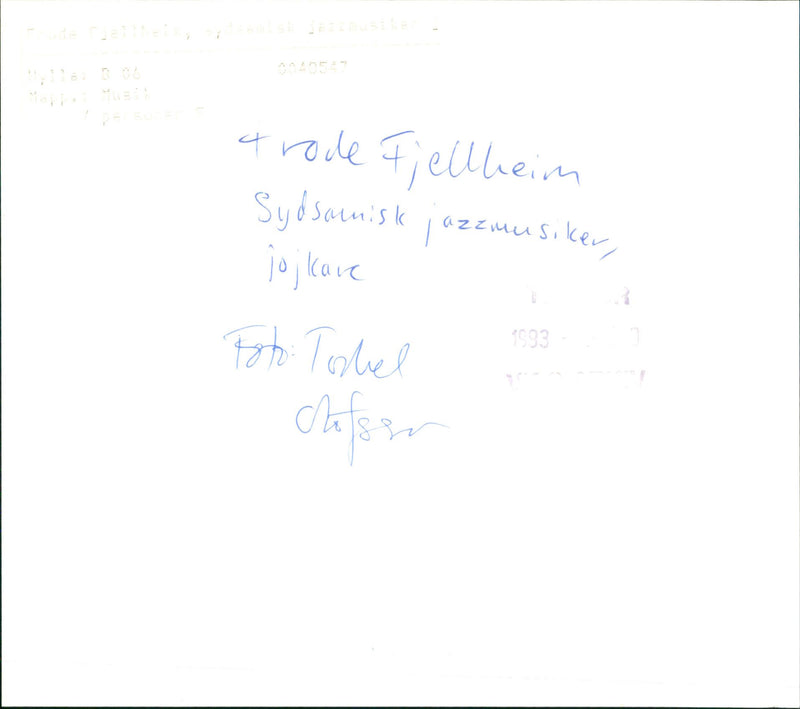 Frode Fjellheim, sydsamisk jazzmusiker
Hylla: B 06 0040547
Mapp.: Musik
/ personer F
Frode Fjellheim
Sydsamisk jazzmusiker,
jojkare
Foto: Torkel
Olofsson
1993